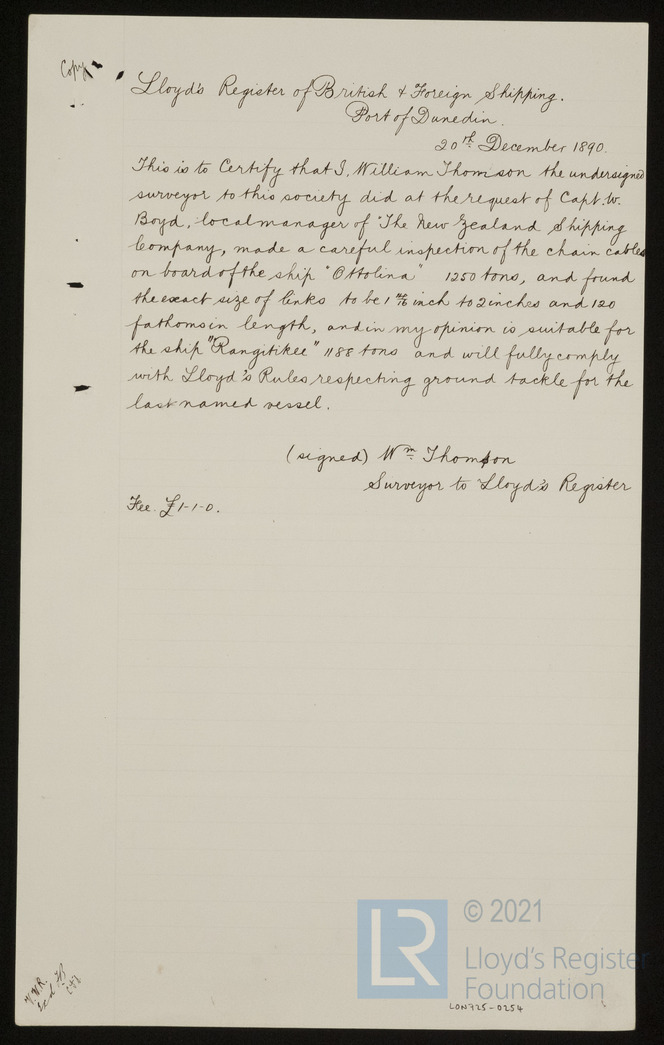 Copy
Lloyd's Register of British & Foreign Shipping.
Port of Dunedin.
20th December 1890.
This is to Certify that I, William Thomson the undersigned
surveyor to this society did at the request of Capt. W.
Boyd, local manager of "The New Zealand Shipping
Company, made a careful inspection of the chain cables
on board of the ship "Ottolina" 1250 tons, and found
the exact size of links to be 1 inch to 2 inches and 120
fathoms in length, and in my opinion is suitable for
the ship "Rangitikee" 1188 tons and will fully comply
with Lloyd's Rules respecting ground tackle for the
last named vessel.
(signed) Wm Thomson
Surveyor to Lloyd's Register
Fee £1-1-0.
LR
© 2021
Lloyd's Register
Foundation
LON725-0254